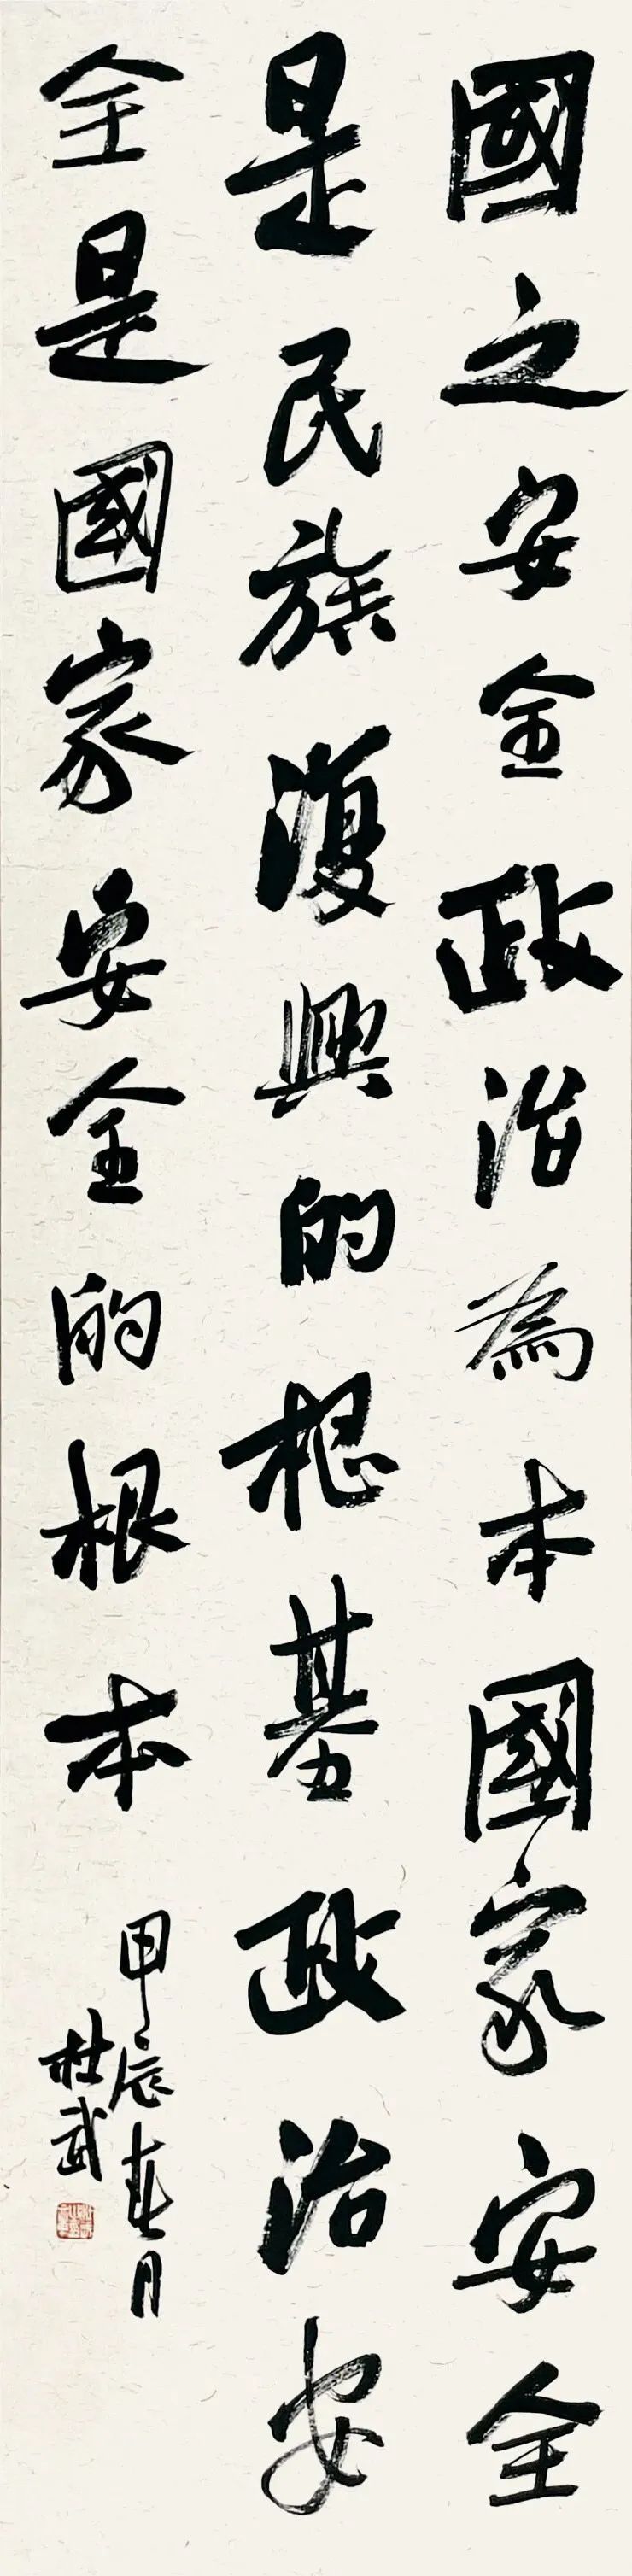 國之安全政治為本國家安全
是民族復興的根基政治安
全是國家安全的根本
甲辰春月
杜武